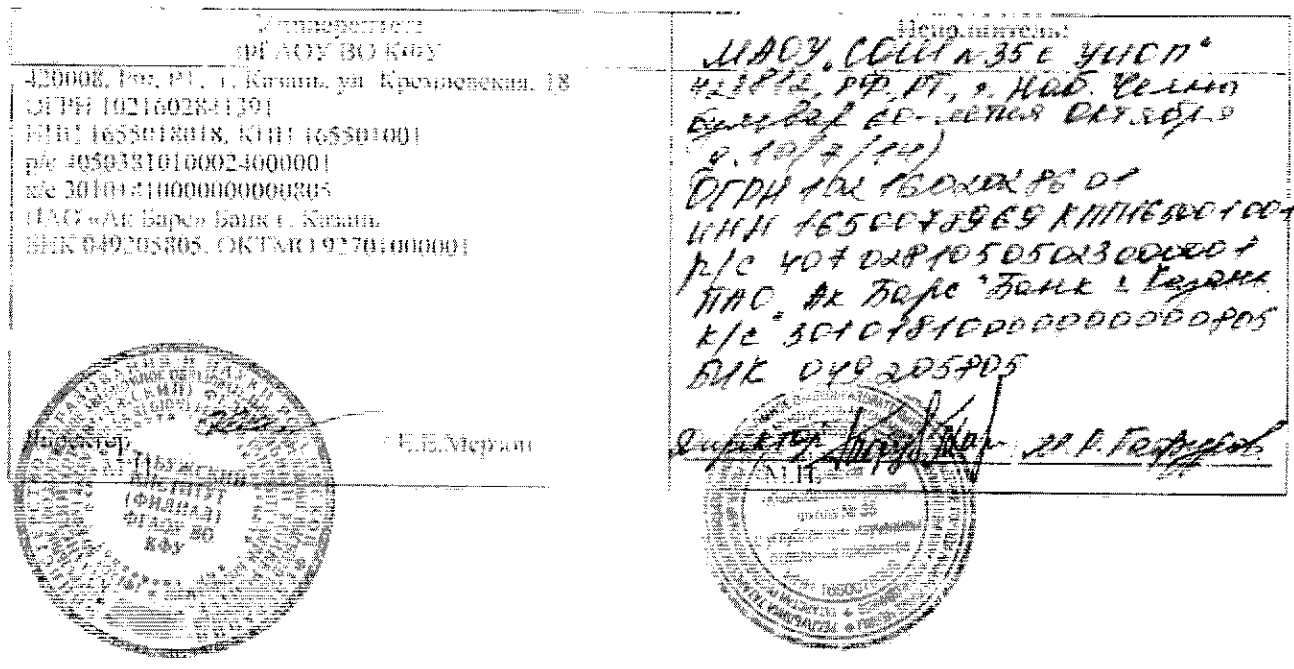 Университет:
ФГАОУ ВО КФУ
420008, РФ, РТ, г. Казань, ул. Кремлевская, 18
ОГРН 1021602841391
ИНН 1655018018, КПП 165501001
р/с 40503810100024000001
к/с 30101810000000000805
ПАО «Ак Барс» Банк г. Казань
БИК 049205805, ОКТМО 92701000001
Директор
Е.Е.Мерзон
М.П.
ИНСТИТУТ
(ФИЛИАЛ)
ФГАОУ ВО
КФУ
Исполнитель:
МАОУ "СОШ №35 с УИОП"
423812, РФ, РТ, г. Наб. Челны
бульвар 60-летия Октября
д. 10/7 (14)
ОГРН 1021602028601
ИНН 1650078969 КПП165001001
р/с 40702810505023000001
ПАО "Ак Барс" Банк г. Казань
к/с 30101810000000000805
БИК 049205805
Директор
М.П.